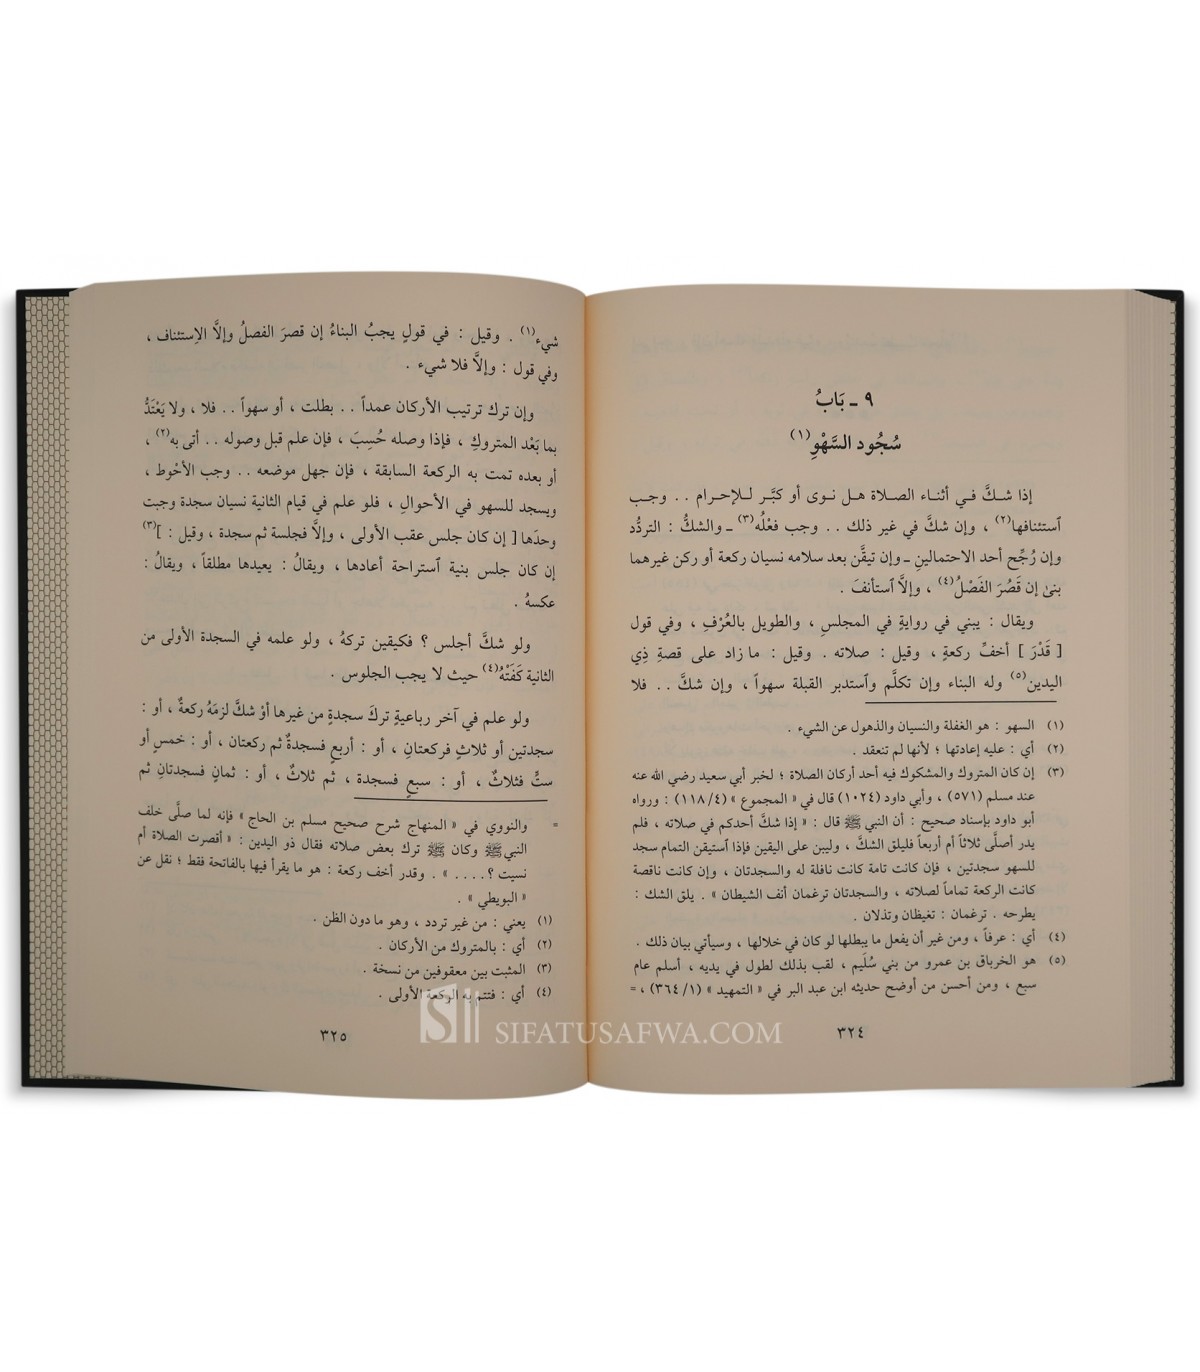 ٩ ـ بَابُ
سُجُود السَّهْوِ(١)
إذا شكَّ في أثناء الصلاة هل نوى أو كبَّر للإحرام . . وجب
ٱستئنافها(٢) ، وإن شكَّ في غير ذلك . . وجب فعْلُه(٣) ـ والشكُّ : التردُّد
وإن رُجِّح أحد الاحتمالين ـ وإن تيقَّن بعد سلامه نسيان ركعة أو ركن غيرهما
بنىٰ إن قَصُرَ الفَصْلُ(٤) ، وإلَّا ٱستأنفَ .
ويقال : يبني في روايةٍ في المجلسِ ، والطويل بالعُرْفِ ، وفي قول
[ قَدْرَ ] أخفِّ ركعةٍ ، وقيل : صلاته . وقيل : ما زاد على قصةِ ذِي
اليدين(٥) وله البناء وإن تكلَّم وٱستدبر القبلة سهواً ، وإن شكَّ . . فلا
(١) السهو : هو الغفلة والنسيان والذهول عن الشيء .
(٢) أي : عليه إعادتها ؛ لأنها لم تنعقد .
(٣) إن كان المتروك والمشكوك فيه أحد أركان الصلاة ؛ لخبر أبي سعيد رضي الله عنه
عند مسلم (٥٧١) ، وأبي داود (١٠٢٤) قال في « المجموع » (١١٨/٤) : ورواه
أبو داود بإسناد صحيح : أن النبي ﷺ قال : « إذا شكَّ أحدكم في صلاته ، فلم
يدر أصلَّى ثلاثاً أم أربعاً فليلق الشكَّ ، وليبن على اليقين فإذا ٱستيقن التمام سجد
للسهو سجدتين ، فإن كانت تامة كانت نافلة له والسجدتان ، وإن كانت ناقصة
كانت الركعة تماماً لصلاته ، والسجدتان ترغمان أنف الشيطان » . يلق الشك :
يطرحه . ترغمان : تغيظان وتذلان .
(٤) أي : عرفاً ، ومن غير أن يفعل ما يبطلها لو كان في خلالها ، وسيأتي بيان ذلك .
(٥) هو الخرباق بن عمرو من بني سُلَيم ، لقب بذلك لطول في يديه ، أسلم عام
سبع ، ومن أحسن من أوضح حديثه ابن عبد البر في « التمهيد » (٣٦٤/١) ، =
٣٢٤
شيء(١) . وقيل : في قولٍ يجبُ البناءُ إن قصرَ الفصلُ وإلَّا الاِستئناف ،
وفي قول : وإلَّا فلا شيء .
وإن ترك ترتيب الأركان عمداً . . بطلت ، أو سهواً . . فلا ، ولا يَعْتَدُّ
بما بَعْد المتروكِ ، فإذا وصله حُسِبَ ، فإن علم قبل وصوله . . أتى به(٢) ،
أو بعده تمت به الركعة السابقة ، فإن جهل موضعه . . وجب الأحْوط ،
ويسجد للسهو في الأحوالِ ، فلو علم في قيام الثانية نسيان سجدة وجبت
وحدَها [ إن كان جلس عقب الأولى ، وإلَّا فجلسة ثم سجدة ، وقيل : ](٣)
إن كان جلس بنية ٱستراحة أعادها ، ويقالُ : يعيدها مطلقاً ، ويقالُ :
عكسهُ .
ولو شكَّ أجلس ؟ فكيقين تركهُ ، ولو علمه في السجدة الأولى من
الثانية كَفَتْهُ(٤) حيث لا يجب الجلوس .
ولو علم في آخر رباعيةٍ تركَ سجدةٍ من غيرها أوْ شكَّ لزمَهُ ركعةٌ ، أو :
سجدتين أو ثلاثٍ فركعتانِ ، أو : أربعٍ فسجدةٌ ثم ركعتان ، أو : خمسٍ أو
ستٍّ فثلاثٌ ، أو : سبعٍ فسجدة ، ثم ثلاثٌ ، أو : ثمانٍ فسجدتانِ ثم
= والنووي في « المنهاج شرح صحيح مسلم بن الحاج » فإنه لما صلَّى خلف
النبي ﷺ وكان ﷺ ترك بعض صلاته فقال ذو اليدين : « أقصرت الصلاة أم
نسيت ؟ . . . . » . وقدر أخف ركعة : هو ما يقرأ فيها بالفاتحة فقط ؛ نقل عن
« البويطي » .
(١) يعني : من غير تردد ، وهو ما دون الظن .
(٢) أي : بالمتروك من الأركان .
(٣) المثبت بين معقوفين من نسخة .
(٤) أي : فتتم به الركعة الأولى .
٣٢٥
SIFATUSAFWA.COM